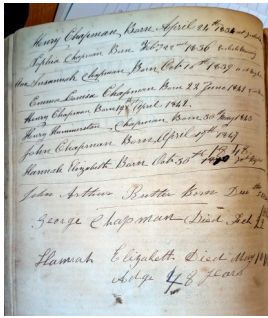 Henry Chapman Born April 24th 1834
Sophia Chapman Born Feb 1836
Ann Susannah Chapman Born Oct 10th 1839
Emma Louisa Chapman Born 22 June 1841
Henry Chapman Born 19th April 1842
Henry Hammerton Chapman Born 30 1845
John Chapman Born April 19th 1847
Hannah Elizabeth Born Oct 30th 1848
John Arthur Rutter Born
George Chapman Died Feb 22
Hannah Elizabeth Died May
Adge 48 years